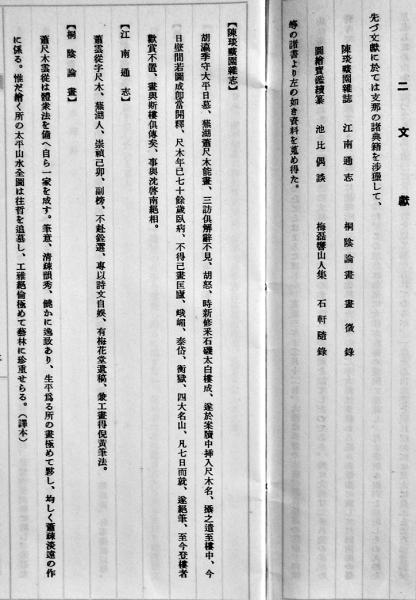 二 文獻
先づ文獻に於ては支那の諸典籍を涉獵して、
陳琰曠園雜誌 江南通志 桐陰論畫 畫徵錄
圖繪寶鑑續纂 池北偶談 梅磊響山人集 石軒隨錄
等の諸書より左の如き資料を蒐め得た。
【陳琰曠園雜志】
胡瀛季守大平日慕、蕪湖蕭尺木能畫、三訪俱解辭不見、胡怒、時新修采石磯太白樓成、遂於案牘中挿入尺木名、攝之遣至樓中、今
日壁間若圖成卽當開釋、尺木年已七十餘歲臥病、不得已畫匡廬、峨嵋、泰岱、衡嶽、四大名山、凡七日而就、遂絕筆、至今登樓者
歡賞不置、畫與斯樓俱傳矣、事與沈啓南絕相。
【江南通志】
蕭雲從字尺木、蕪湖人、崇禎己卯、副榜、不赴銓選、專以詩文自娛、有梅花堂遺稿、兼工畫得倪黃筆法。
【桐陰論畫】
蕭尺木雲從は體衆法を備へ自ら一家を成す。筆意、清疎韻秀、饒かに逸致あり、生平爲る所の畫極めて夥し、均しく蕭疎淡遠の作
に係る。惟だ繪く所の太平山水全圖は往哲を追慕し、工雅絕倫極めて藝林に珍重せらる。（譯本）